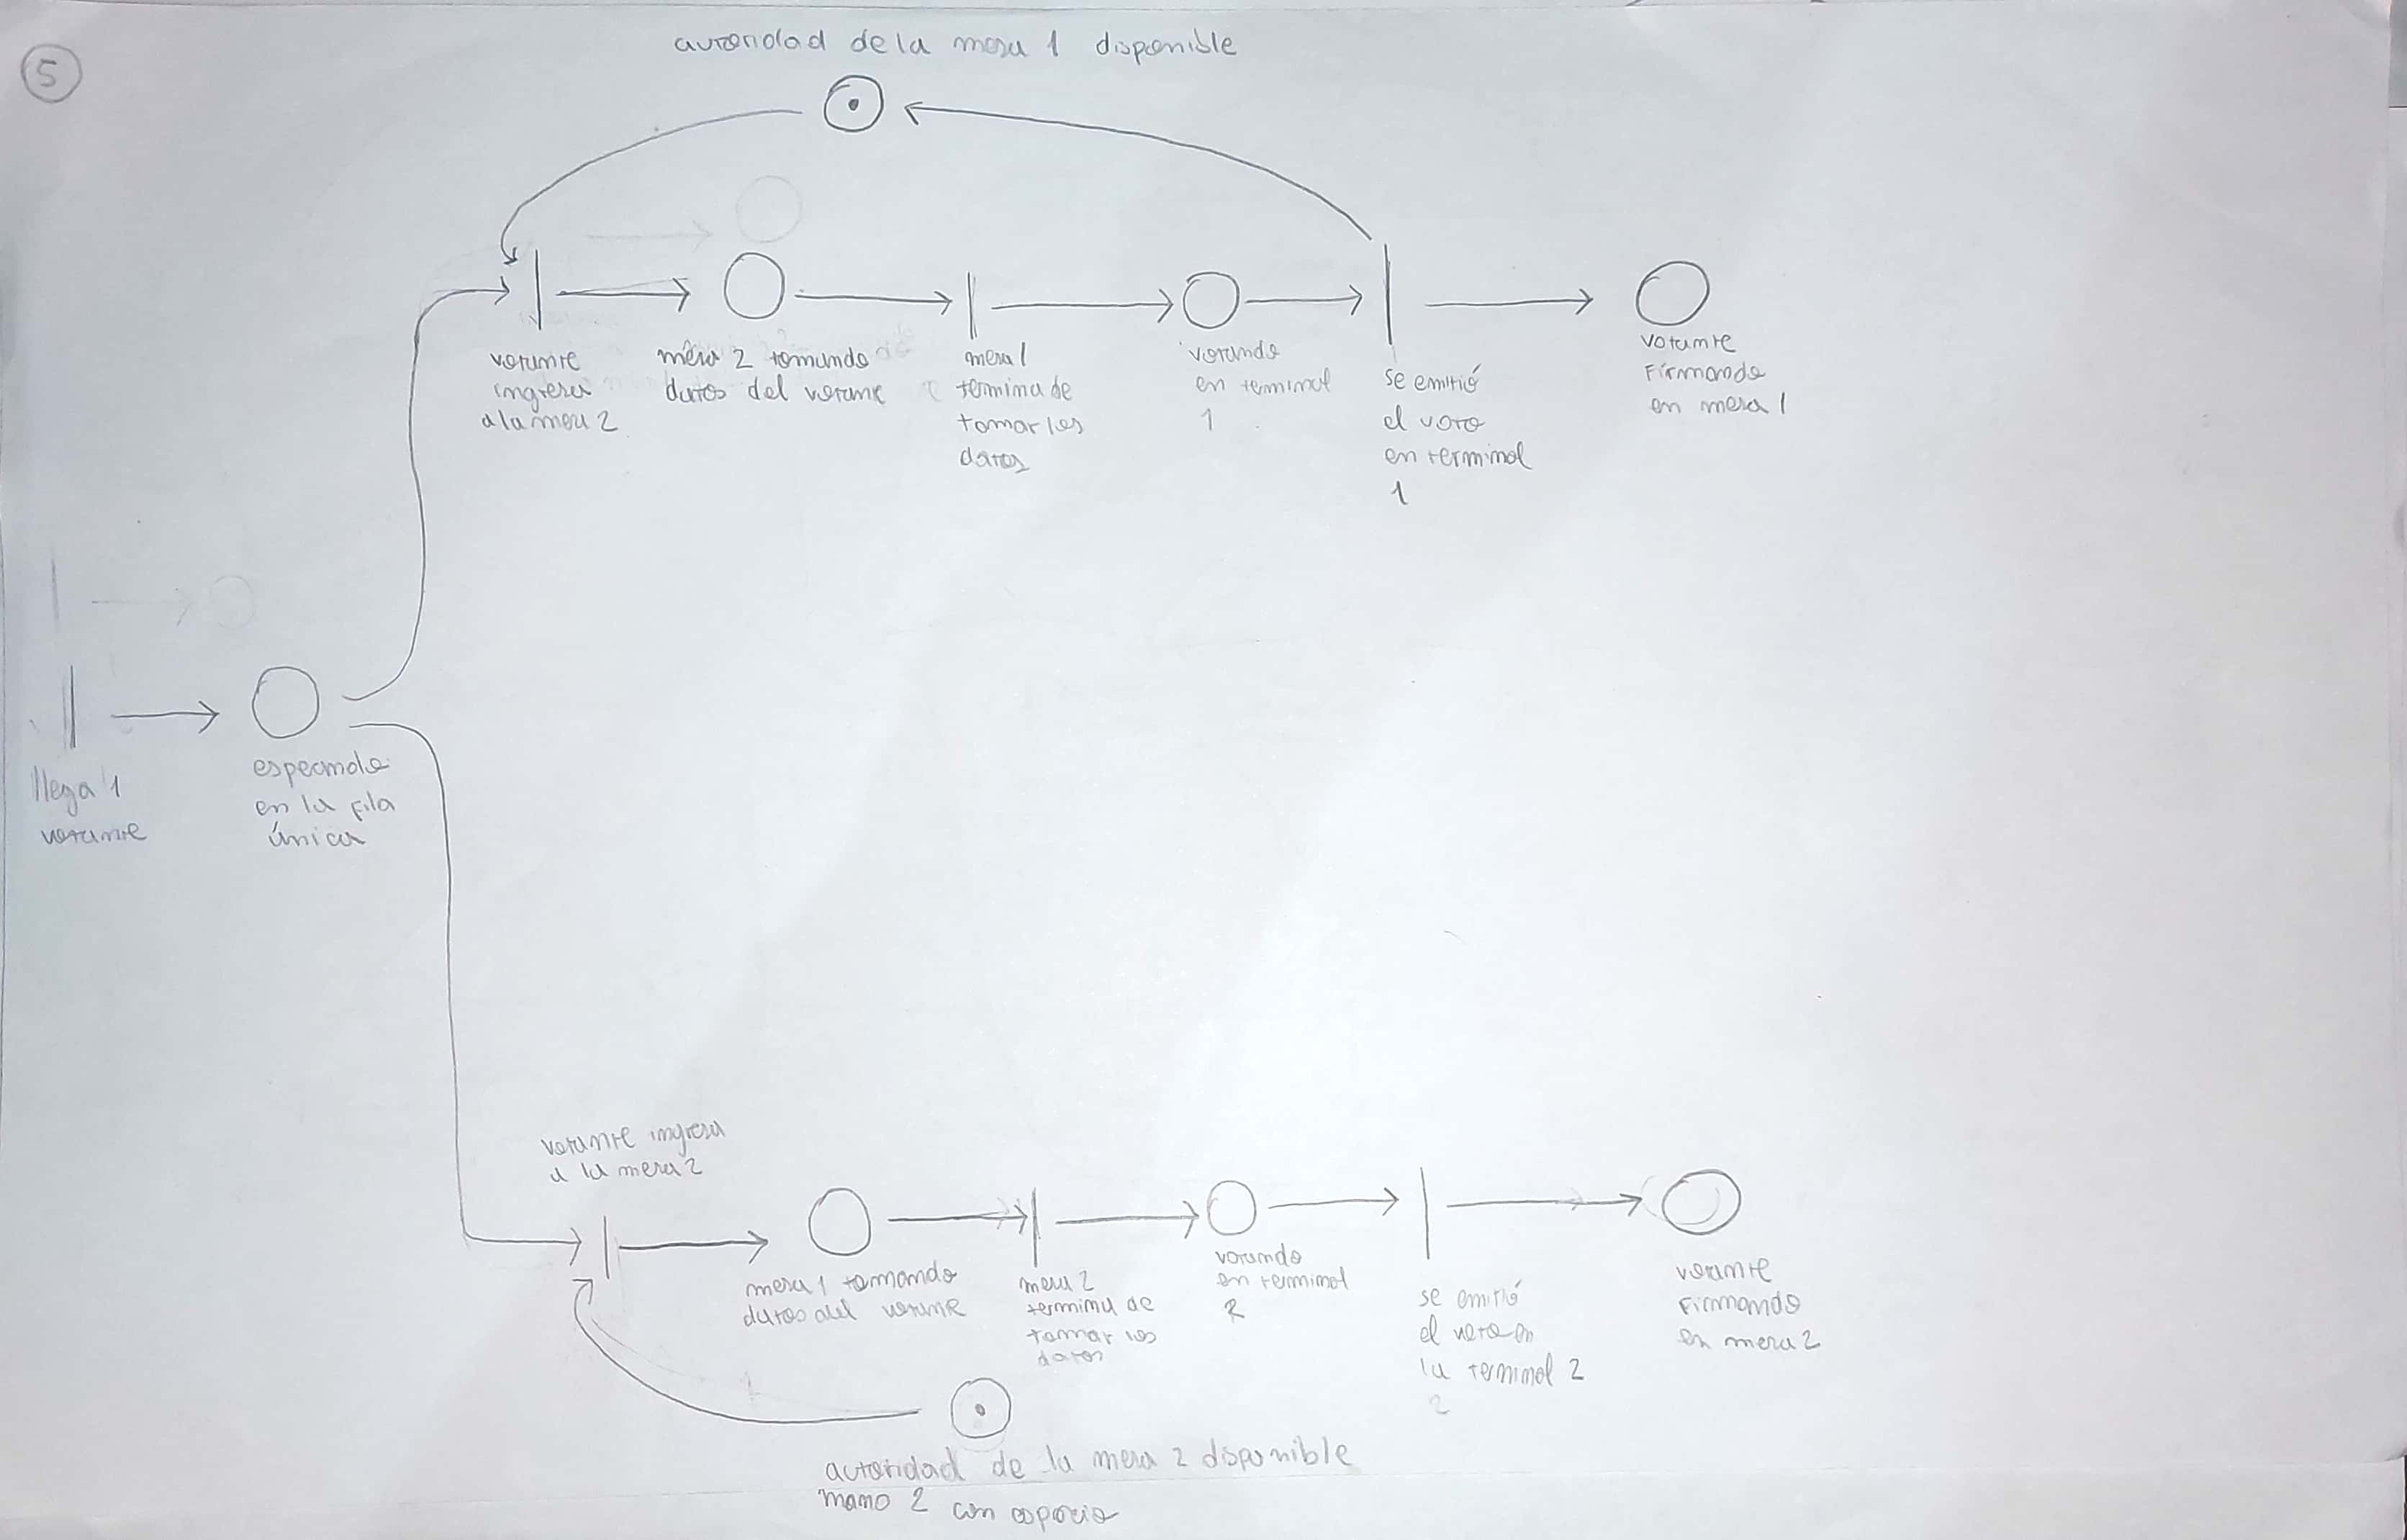 5
autoridad de la mesa 1 disponible
votante
ingresa
a la mesa 2
mesa 2 tomando
datos del votante
mesa 1
termina de
tomar los
datos
votando
en terminal
1
se emitió
el voto
en terminal
1
votante
Firmando
en mesa 1
llega 1
votante
espeando
en la fila
única
votante ingresa
a la mesa 2
mesa 1 tomando
datos del votante
mesa 2
termina de
tomar los
datos
votando
en terminal
2
se emitió
el voto en
la terminal 2
2
votante
Firmando
en mesa 2
autoridad de la mesa 2 disponible
mano 2 con espacio